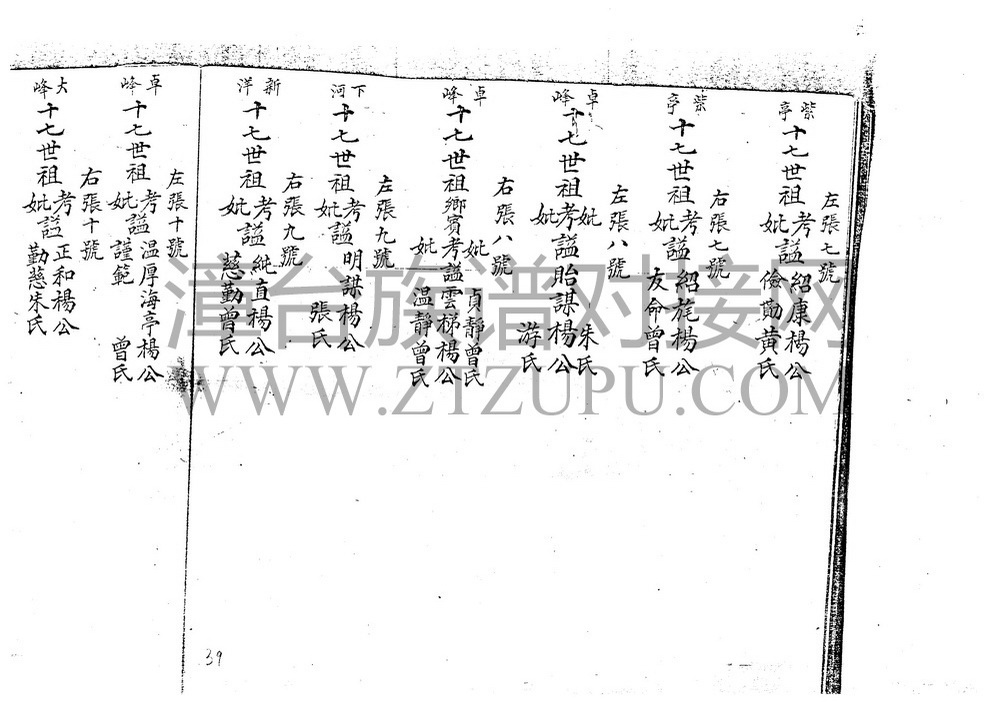 左張七號
紫亭 十七世祖考妣謚 紹康楊公 儉勤黃氏
右張七號
紫亭 十七世祖考妣謚 紹旄楊公 友命曾氏
左張八號
卓峰 十七世祖妣考妣謚 朱氏 貽謀楊公 游氏
右張八號
卓峰 十七世祖鄉賓妣考妣謚 貞靜曾氏 雲梯楊公 温靜曾氏
左張九號
下河 十七世祖考妣謚 明謀楊公 張氏
右張九號
新洋 十七世祖考妣謚 純直楊公 慈勤曾氏
左張十號
卓峰 十七世祖考妣謚 温厚海亭楊公 謹範曾氏
右張十號
大峰 十七世祖考妣謚 正和楊公 勤慈朱氏
39
漳台族谱对接网
WWW.ZTZUPU.COM